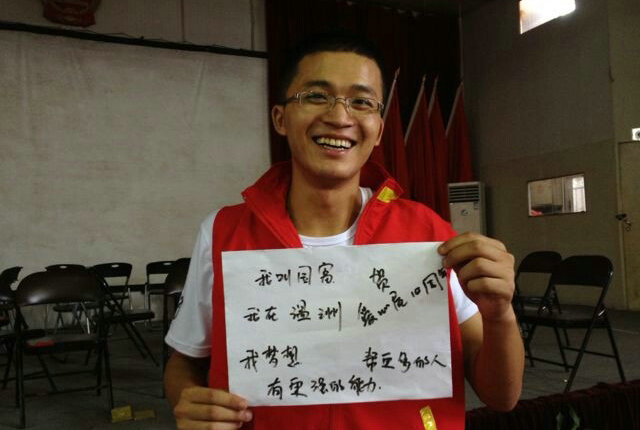 我叫国富 贺
我在温洲 爱心屋10周
我梦想 帮更多的人
有更强的能力.